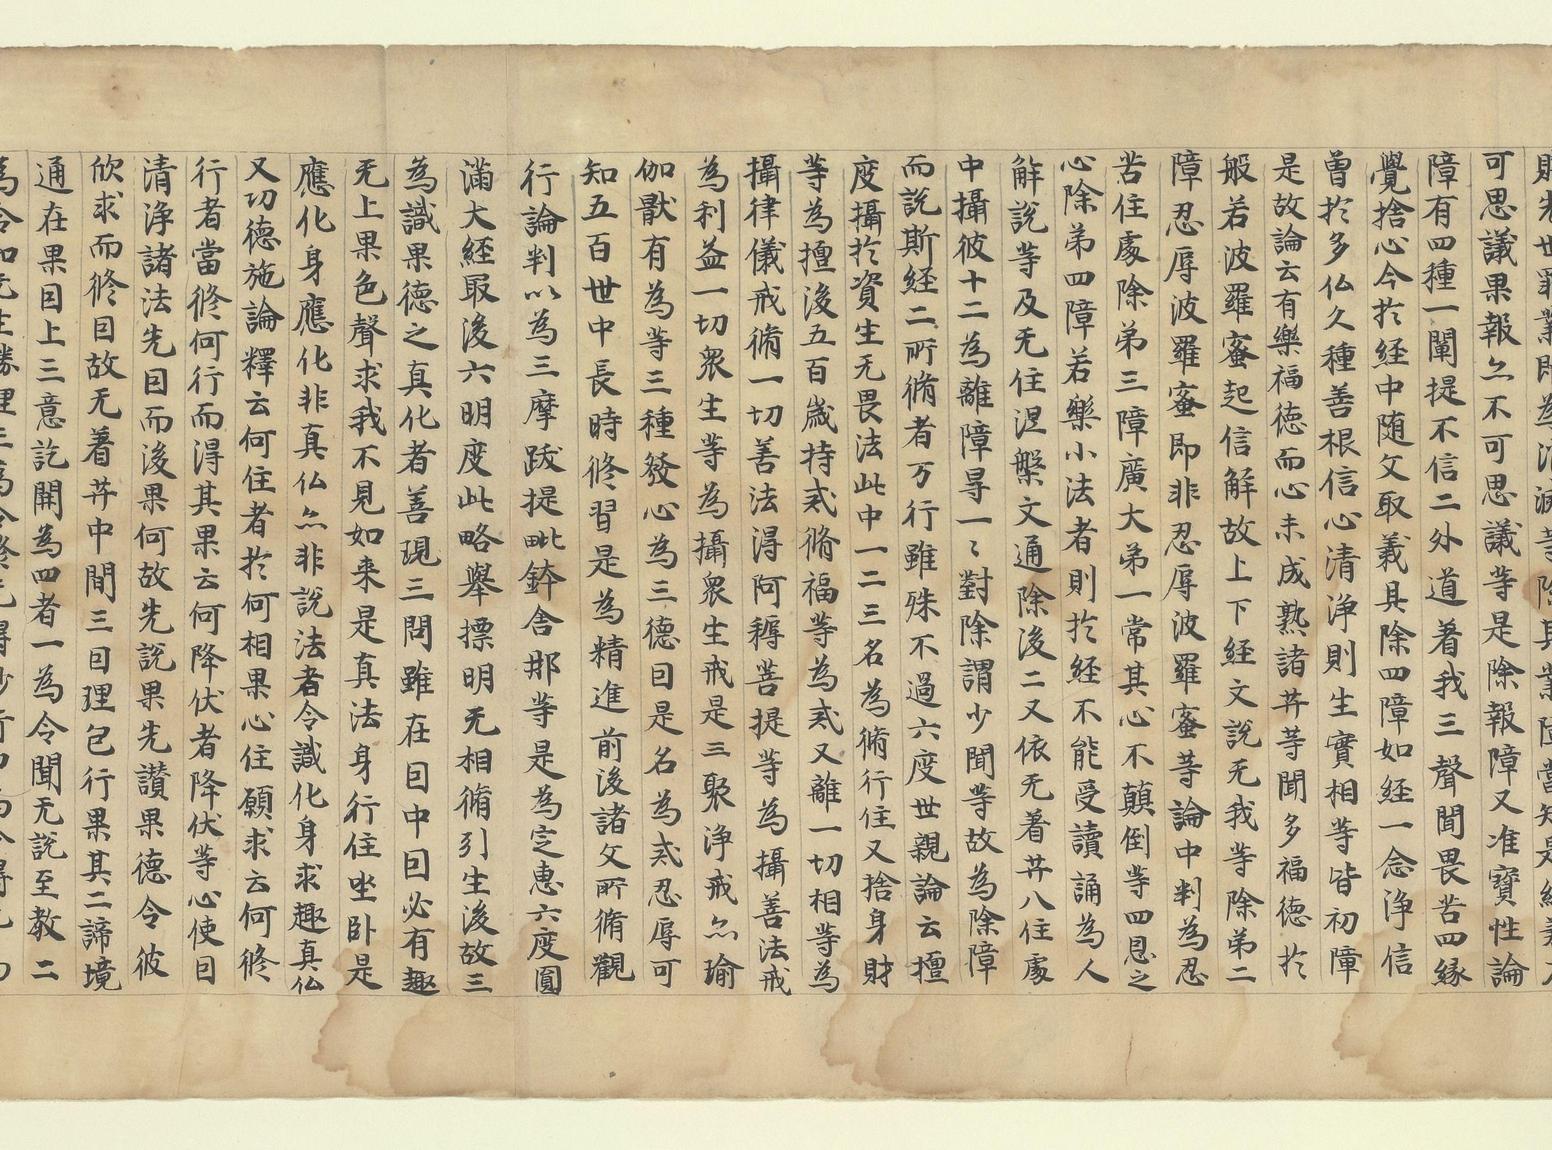 則先世罪業即為消滅等除其業障當知是經義不
可思議果報亦不可思議等是除報障又准寶性論
障有四種一闡提不信二外道著我三聲聞畏苦四緣
覺捨心今於經中随文取義具除四障如經一念淨信
曾於多仏久種善根信心清淨則生實相等皆初障
是故論云有樂福德而心未成熟諸䒑等聞多福德於
般若波羅蜜起信解故上下經文說无我等除弟二
障忍辱波羅蜜即非忍辱波羅蜜等論中判為忍
苦住處除弟三障廣大弟一常其心不顛倒等四恩之
心除弟四障若樂小法者則於經不能受讀誦為人
解說等及无住涅槃文通除後二又依无著䒑八住處
中攝彼十二為離障㝵一〻對除謂少聞等故為除障
而說斯經二所脩者万行雖殊不過六度世親論云檀
度攝於資生无畏法此中一二三名為脩行住又捨身財
等為擅後五百歲持戒脩福等為戒又離一切相等為
攝律儀戒脩一切善法得阿耨菩提等為攝善法戒
為利益一切衆生等為攝衆生戒是三聚淨戒亦瑜
伽猒有為等三種發心為三德曰是名為戒忍辱可
知五百世中長時修習是為精進前後諸文所脩觀
行論判以為三摩跋提毗鉢舍那等是為定惠六度圓
滿大經最後六明度此略舉摽明无相脩引生後故三
為識果德之真化者善現三問雖在因中因必有趣
无上果色聲求我不見如来是真法身行住坐卧是
應化身應化非真仏亦非說法者令識化身求趣真仏
又功德施論釋云何住者於何相果心住願求云何修
行者當修何行而得其果云何降伏者降伏等心使因
清淨諸法先因而後果何故先說果先讚果德令彼
欣求而修因故无著䒑中間三因理包行果其二諦境
通在果因上三意訖開為四者一為令聞无說至教二